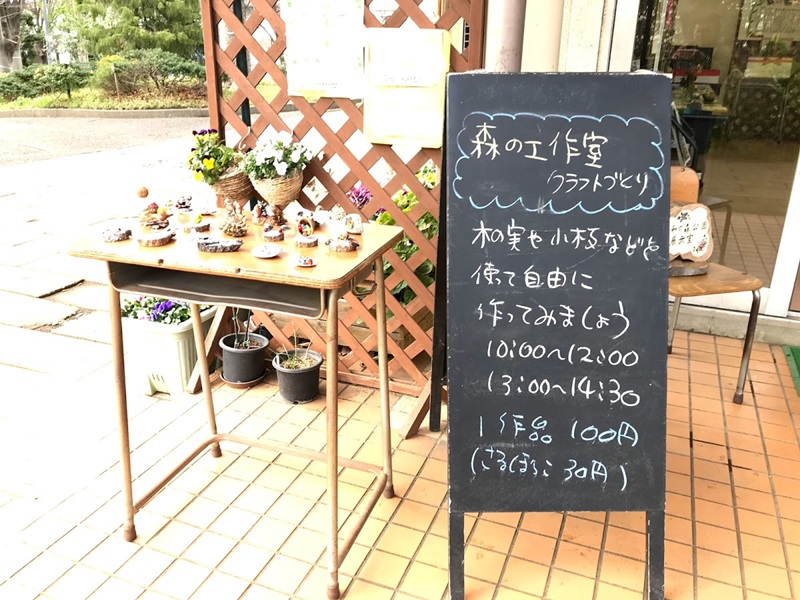 森の工作室
クラフトづくり
木の実や小枝などを
使って自由に
作ってみましょう
10:00〜12:00
13:00〜14:30
1作品 100円
(さるぼぼこ 30円)